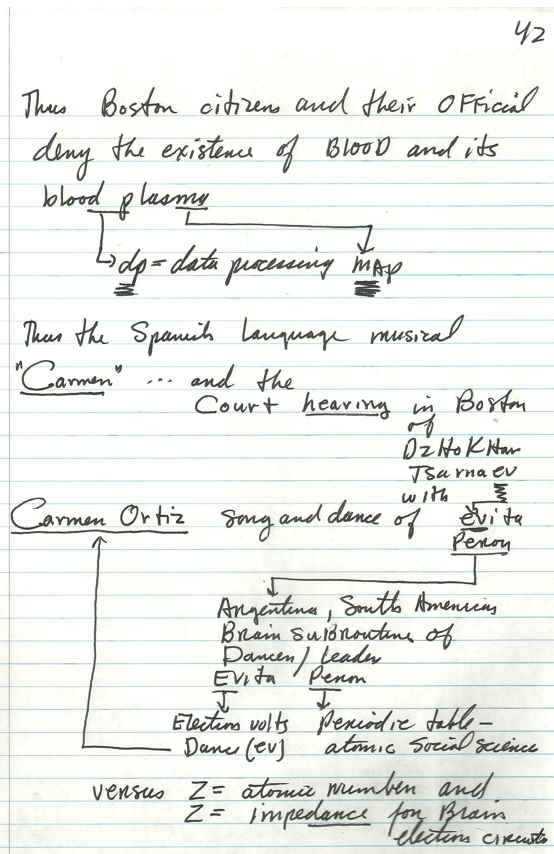 42
Thus Boston citizens and their OFFicial
deny the existence of BLOOD and its
blood plasma
dp = data processing map
Thus the Spanish Language musical
"Carmen" ... and the
Court hearing in Boston
of
DzHoKHar
Tsarnaev
with
Carmen Ortiz song and dance of evita
Peron
Argentina, South American
Brain subroutine of
Dancer/leader
Evita Peron
Electron volts Periodic table -
Dance (ev) atomic social science
versus Z = atomic number and
Z = impedance for Brain
electron circuits